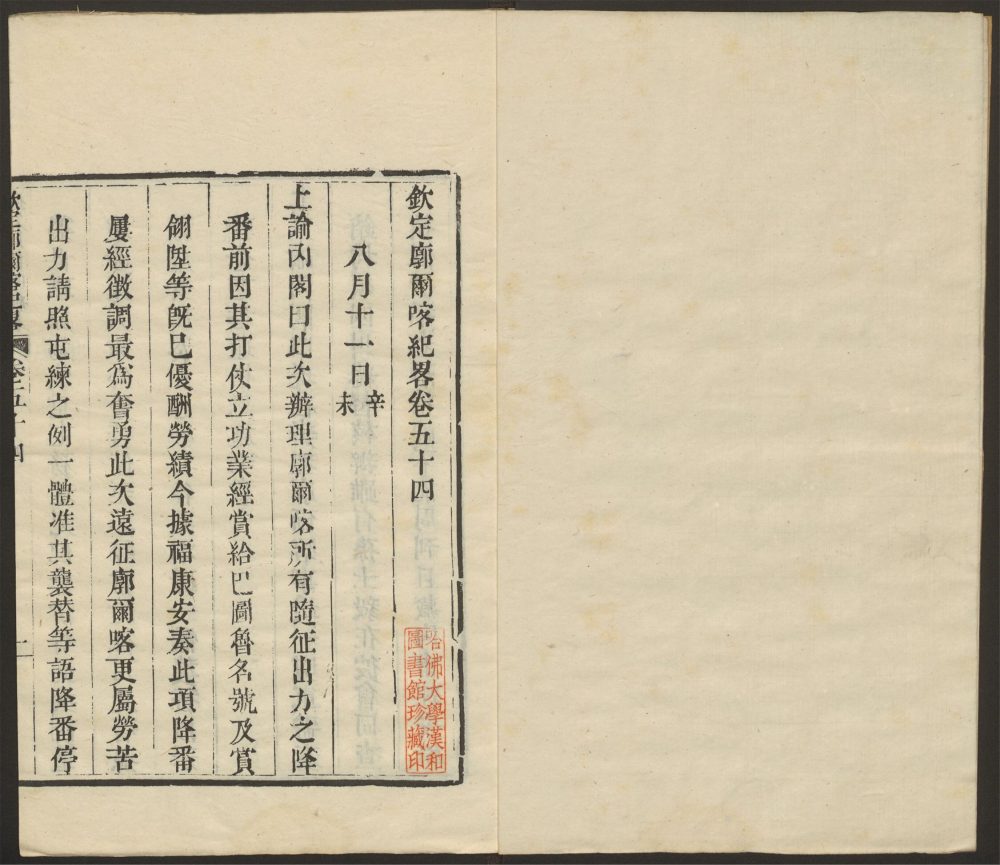 欽定廓爾喀紀畧卷五十四
八月十一日辛未
上諭內閣曰此次辦理廓爾喀所有隨征出力之降
番前因其打仗立功業經賞給巴圖魯名號及賞
翎陞等旣已優酬勞績今據福康安奏此項降番
屢經徵調最爲奮勇此次遠征廓爾喀更屬勞苦
出力請照屯練之例一體准其襲替等語降番停
哈佛大學漢和
圖書館珍藏印